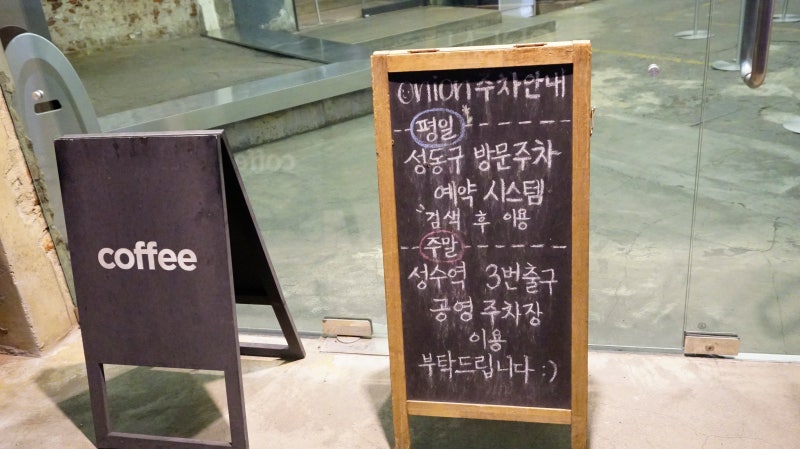 coffee
Onion 주차안내
평일
성동구 방문주차
예약 시스템
검색 후 이용
주말
성수역 3번출구
공영 주차장
이용
부탁드립니다 :)